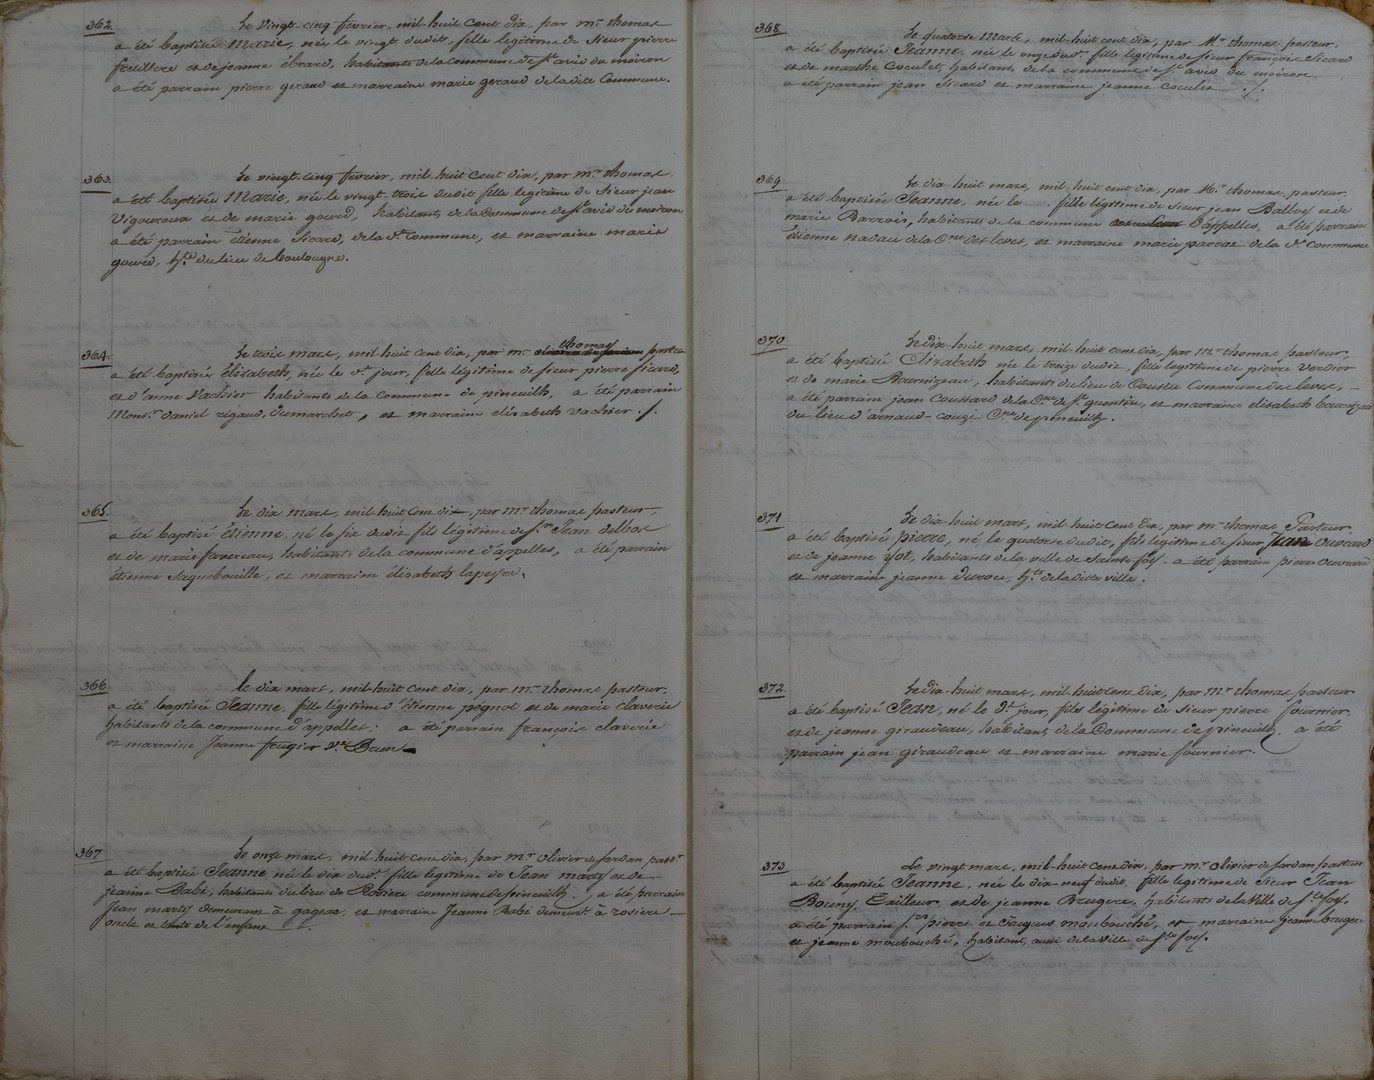 362. Le vingt-cinq fevrier, mil-huit cent dix, par mr. thomas
a été baptisée Marie, née le vingt dudit, fille legitime de Sieur pierre
freillere et de jeanne ébrard, habitants de la Commune de St. avid du moiron
a été parrain pierre geraud et marraine marie geraud de la dite Commune.
363. Le vingt-cinq fevrier, mil huit cent dix, par mr. thomas
a été baptisée Marie, née le vingt-trois dudit fille legitime de Sieur jean
Vigouroux et de marie gouerd, habitants de la Commune de St. avid du moiron
a été parrain Étienne Sicard, de la dte. Commune, et marraine marie
gouerd, hte. du lieu de Coulougne.
364. Le trois mars, mil-huit cent dix, par mr. thomas pasteur
a été baptisée Élizabeth, née le dt. jour, fille légitime de sieur pierre fierre,
et d'anne Vachier habitants de la Commune de pineuilh, a été parrain
Monsr. daniel rigaud, dumarchet, et marraine élisabeth Vachier ./.
365. Le dix mars, mil-huit cent dix, par mr. thomas pasteur,
a été baptisé Étienne, né le six dudit fils légitime de sr. Jean delbos
et de marie favereau, habitants de la commune d'appelles, a été parrain
étienne Saquebouille, et marraine élisabeth lapeyre.
366 Le dix mars, mil-huit cent dix, par mr. thomas pasteur.
a été baptisée Jeanne, fille légitime d'étienne pégnot et de marie claverie
habitants de la commune d'appelles; a été parrain françois claverie
et marraine Jeanne frugier Ve. Brun
367 Le onze mars, mil-huit cent dix, par mr. Olivier de fardan pastr.
a été baptisée Jeanne née le dix dudt. fille légitime de Jean marty et de
jeanne Babi, habitants du lieu de Rosiere commune de pineuilh; a été parrain
Jean marty demeurant à gageac, et marraine Jeanne Babi demeurt. à rosiere
oncle et tante de l'enfant.
368. Le quatorze Mars, mil-huit cent dix, par Mr. thomas pasteur.
a été baptisée Jeanne, née le onze dudt. fille légitime de sieur françois Sicard
et de marthe Coculet, habitants de la commune de St. avid du moiron
a été parrain jean Sicard et marraine jeanne coculet ./.
369 Le dix-huit mars, mil huit cent dix, par Mr. thomas, pasteur,
a été baptisée Jeanne, née le ... fille légitime de sieur jean Ballos et de
marie Barrois, habitants de la commune d'appelles, a été parrain
Étienne nadau de la Cne. des leves, et marraine marie parrot de la dt. commune
370 Le dix-huit mars, mil-huit cent dix, par Mr. thomas pasteur,
a été baptisée Élisabeth née le treize dudit, fille legitime de pierre Verdier
et de marie Bournizeau, habitants du lieu de Coustu Commune des leves,
a été parrain jean Coussard de la Cne. de St. quentin, et marraine elisabeth bournizeau
du lieu d'arnaud-cougi Cne. de pineuilh.
371 Le dix-huit mars, mil-huit cent dix, par mr. thomas Pasteur,
a été baptisé pierre, né le quatorze dudit, fils legitime de sieur Jean Ouvrard
et de jeanne Jol, habitants de la ville de Sainte foy - a été parrain pierre ouvrard
et marraine jeanne duroc, hte. de la dite ville.
372 Le dix-huit mars, mil-huit cent dix, par Mr thomas pasteur
a été baptisé Jean, né le dt. jour, fils légitime de sieur pierre fournier,
et de jeanne giraudeau, habitants de la Commune de pineuilh, a été
parrain jean giraudeau et marraine marie fournier.
373 Le vingt mars, mil-huit cent dix, par mr. Olivier de fardan pasteur
a été baptisée Jeanne, née le dix-neuf dudit, fille legitime de Sieur Jean
Bouny, Tailleur, et de jeanne Brugere, habitants de la Ville de Ste. foy.
a été parrain srs. pierre et Jacques moubouché, et marraine jeanne bruger
et jeanne moubouché, habitants aussi de la Ville de Ste. foy.